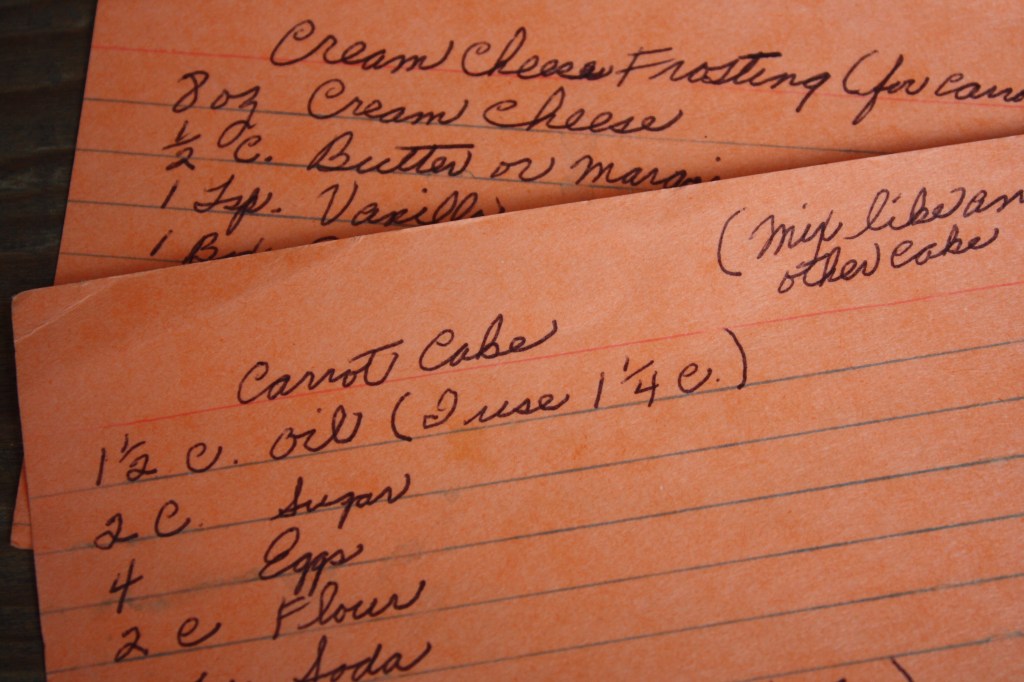 Cream Cheese Frosting (for carro
8 oz Cream Cheese
1/2 C. Butter or margari
1 Tsp. Vanilla
1 Box
(Mix like an
other cake
Carrot Cake
1 1/2 c. oil (I use 1 1/4 c.)
2 C. Sugar
4 Eggs
2 C Flour
Soda